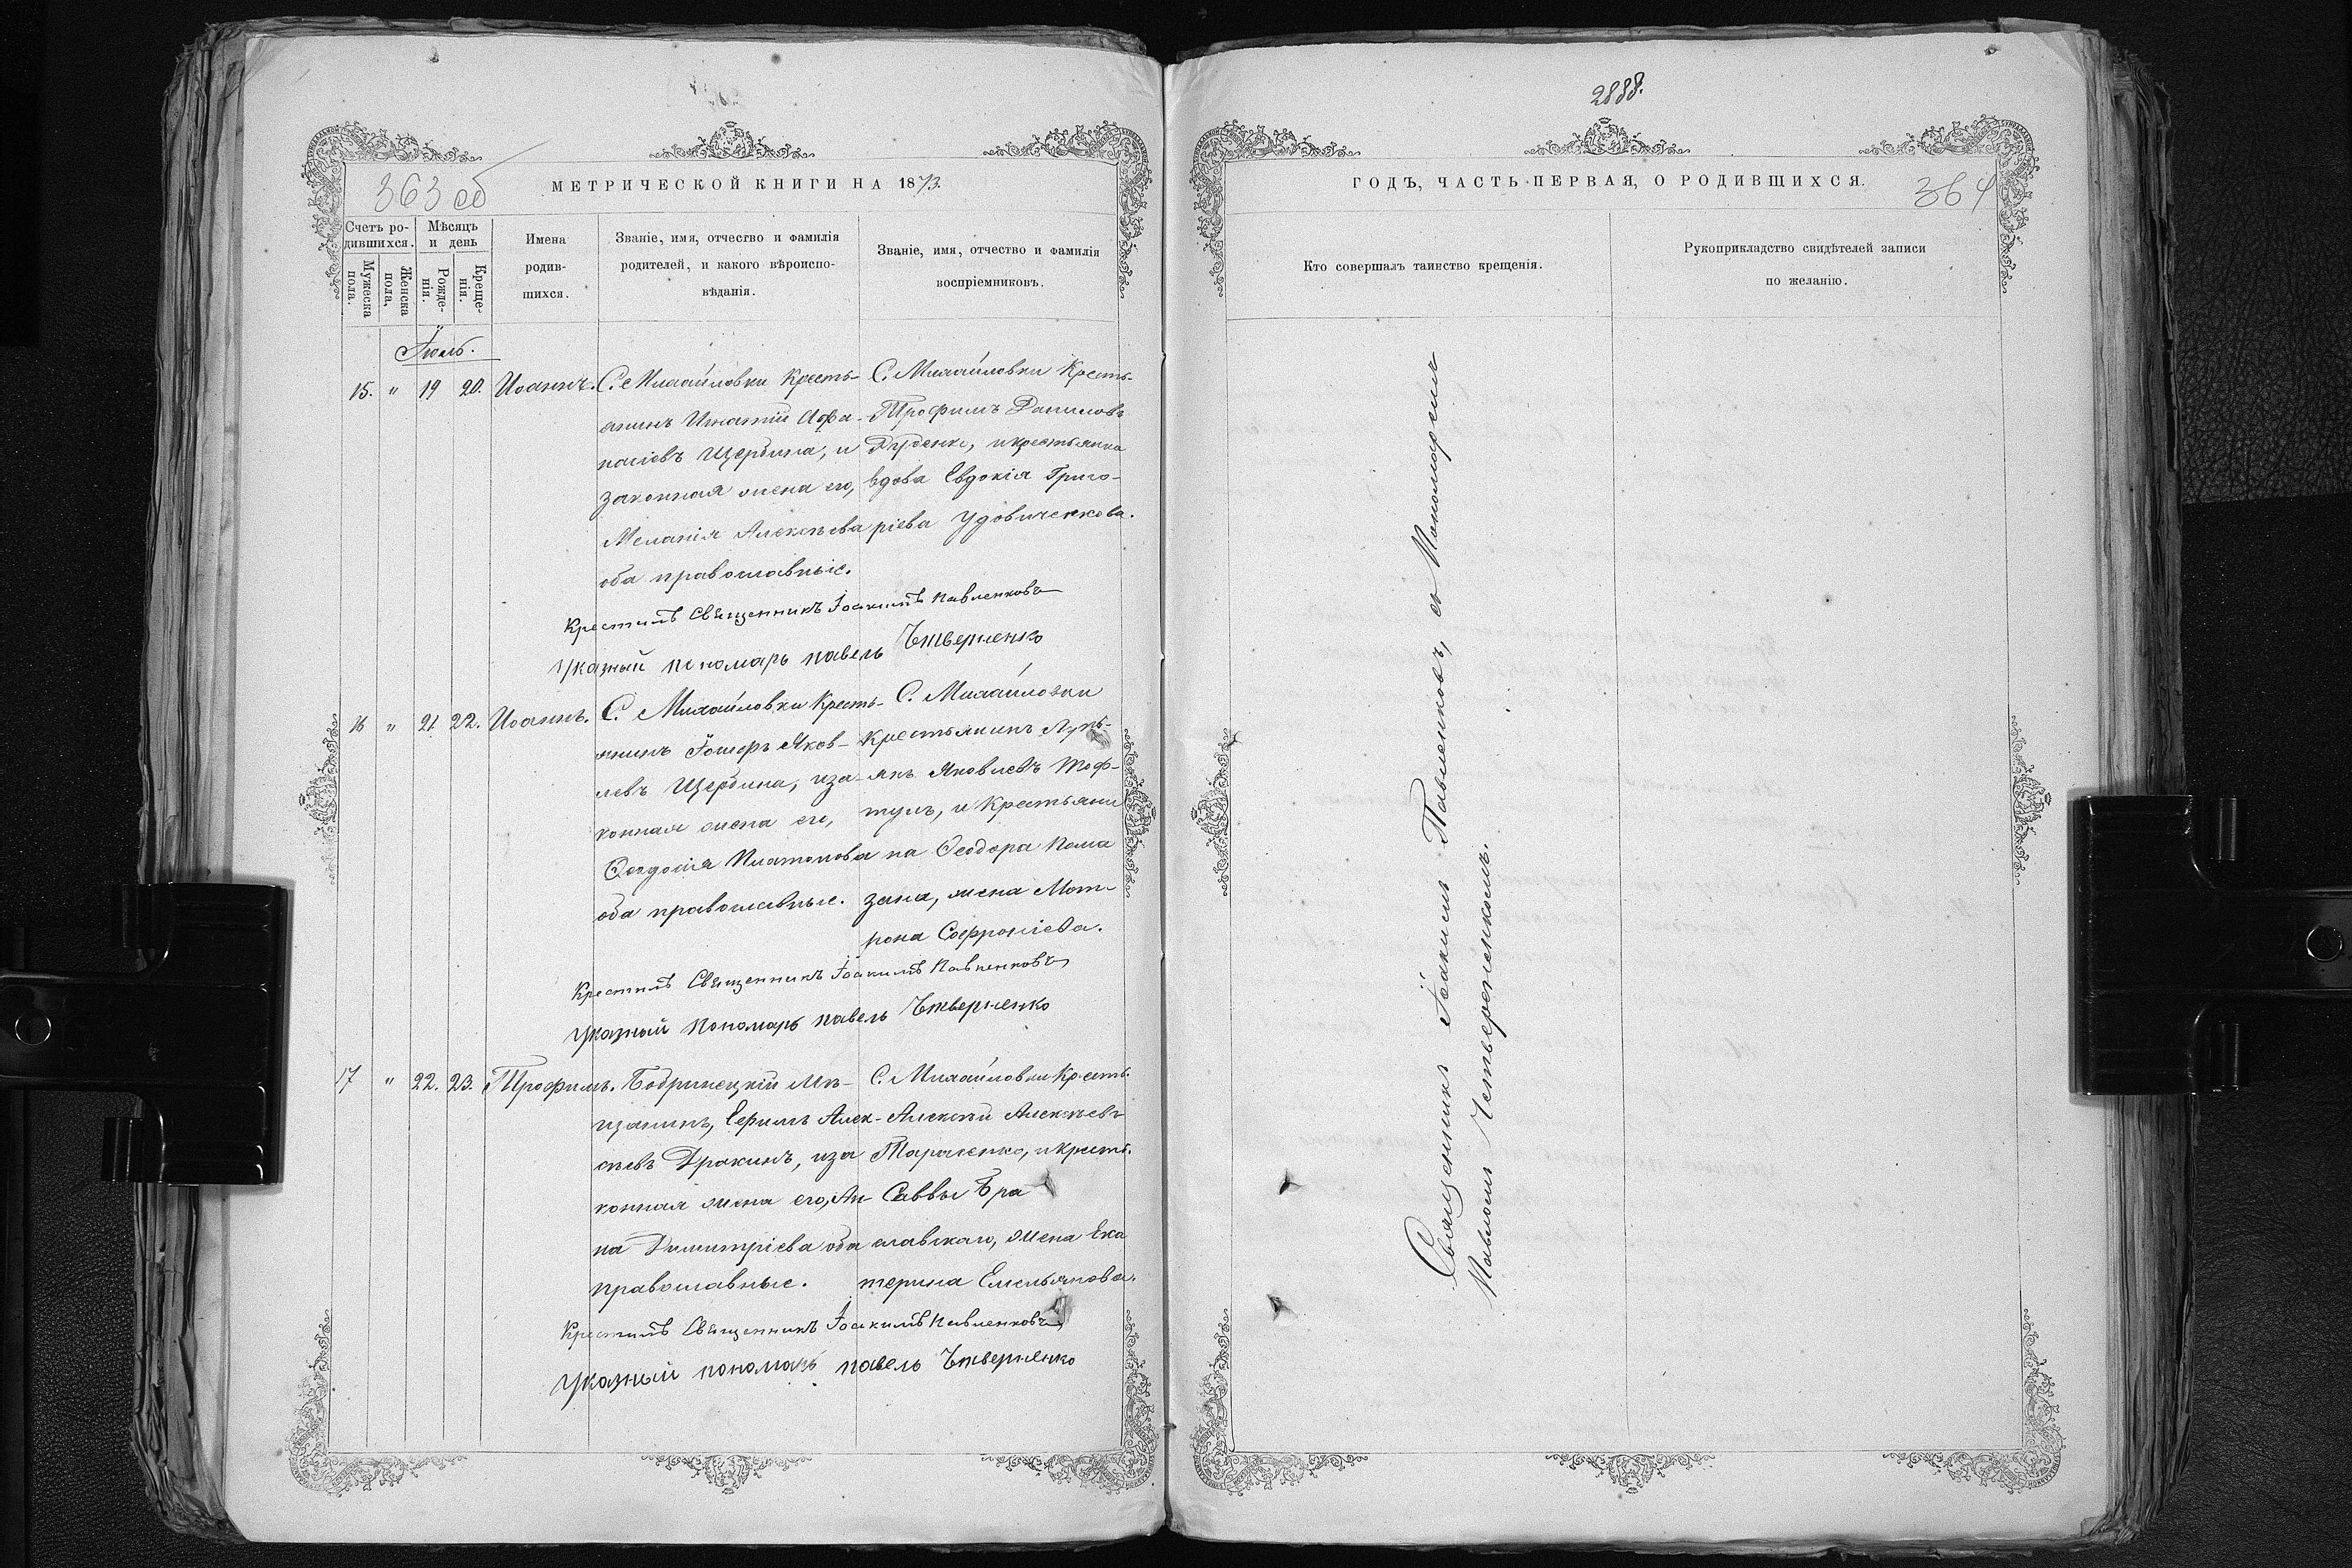 363 об
МЕТРИЧЕСКОЙ КНИГИ НА 1873.
Счетъ ро-
дившихся.
Мѣсяцъ
и день
Мужеска
пола.
Женска
пола,
Рожде-
нія.
Креще-
нія.
Имена
родив-
шихся.
Званіе, имя, отчество и фамилія
родителей, и какого вѣроиспо-
вѣданія.
Званіе, имя, отчество и фамилія
воспріемниковъ.
Іюль.
15. " 19 20. Иоаннъ.
С. Михайловки Кресть-
янинъ Игнатій Афа-
насіевъ Щербина, и
законная жена его,
Меланія Алексѣева
оба православные.
С. Михайловки Кресть-
Трофимъ Даниловъ
Дуденко, и крестьянка
вдова Евдокія Григо-
ріева Удовиченкова.
Крестилъ Священникъ Іоакимъ Павленковъ
Указный пономарь павелъ Четверженко
16 " 21 22. Иоаннъ.
С. Михайловки Кресть-
янинъ Іосифъ Яков-
левъ Щербина, и за-
конная жена его,
Феодосія Платонова
оба православные.
С. Михайловки
Крестьянинъ Лукь-
янъ Яковлевъ
и Крестьяни
на Феодора
жена Мот-
рона Софроніева.
Крестилъ Священникъ Іоакимъ Павленковъ
Указный Пономарь павелъ Четверженко
17 " 22. 23. Трофимъ.
Бобринецкій Мѣ-
щанинъ, Ефимъ Алек-
сѣевъ Дракинъ, и за
конная жена его, Ан-
на Димитріева оба
православные.
С. Михайловки Кресть.
Алексѣй Алексѣевъ
Тараненко, и крест.
Саввы Бра
славскаго, жена Ека
терина Емельянова.
Крестилъ Священникъ Іоакимъ Павленковъ
Указный пономарь павелъ Четверженко
2888.
ГОДЪ, ЧАСТЬ ПЕРВАЯ, О РОДИВШИХСЯ.
364
Кто совершалъ таинство крещенія.
Рукоприкладство свидѣтелей записи
по желанію.
Священникъ Іоакимъ Павленковъ, съ Пономаремъ
Павломъ Четверженкомъ.